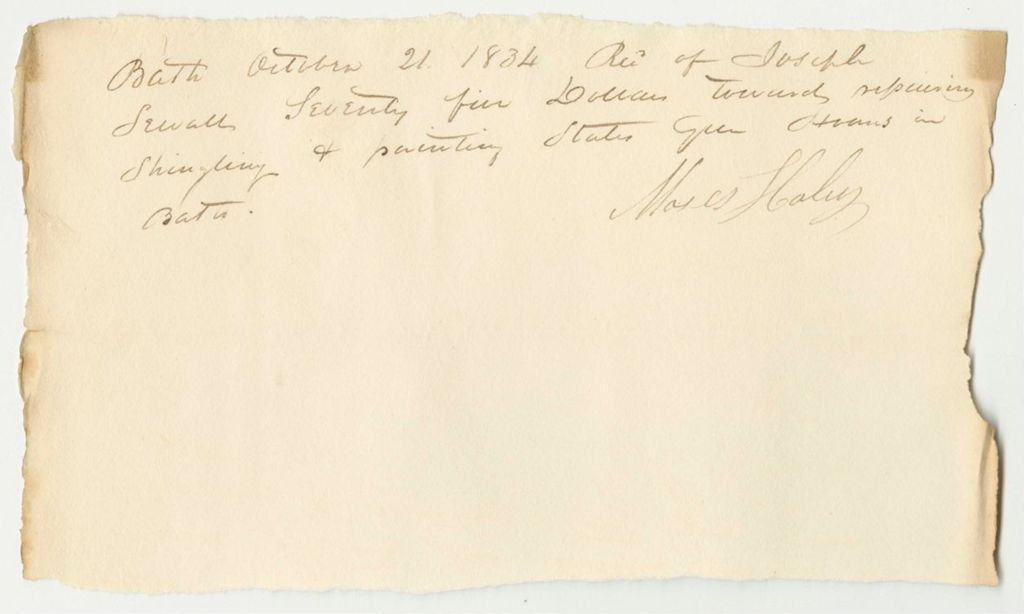 Bath October 21. 1834 Rec of Joseph
Sewall Seventy five Dollars towards repairing
Shingling & painting States Gun House in
Bath.
Moses Haley